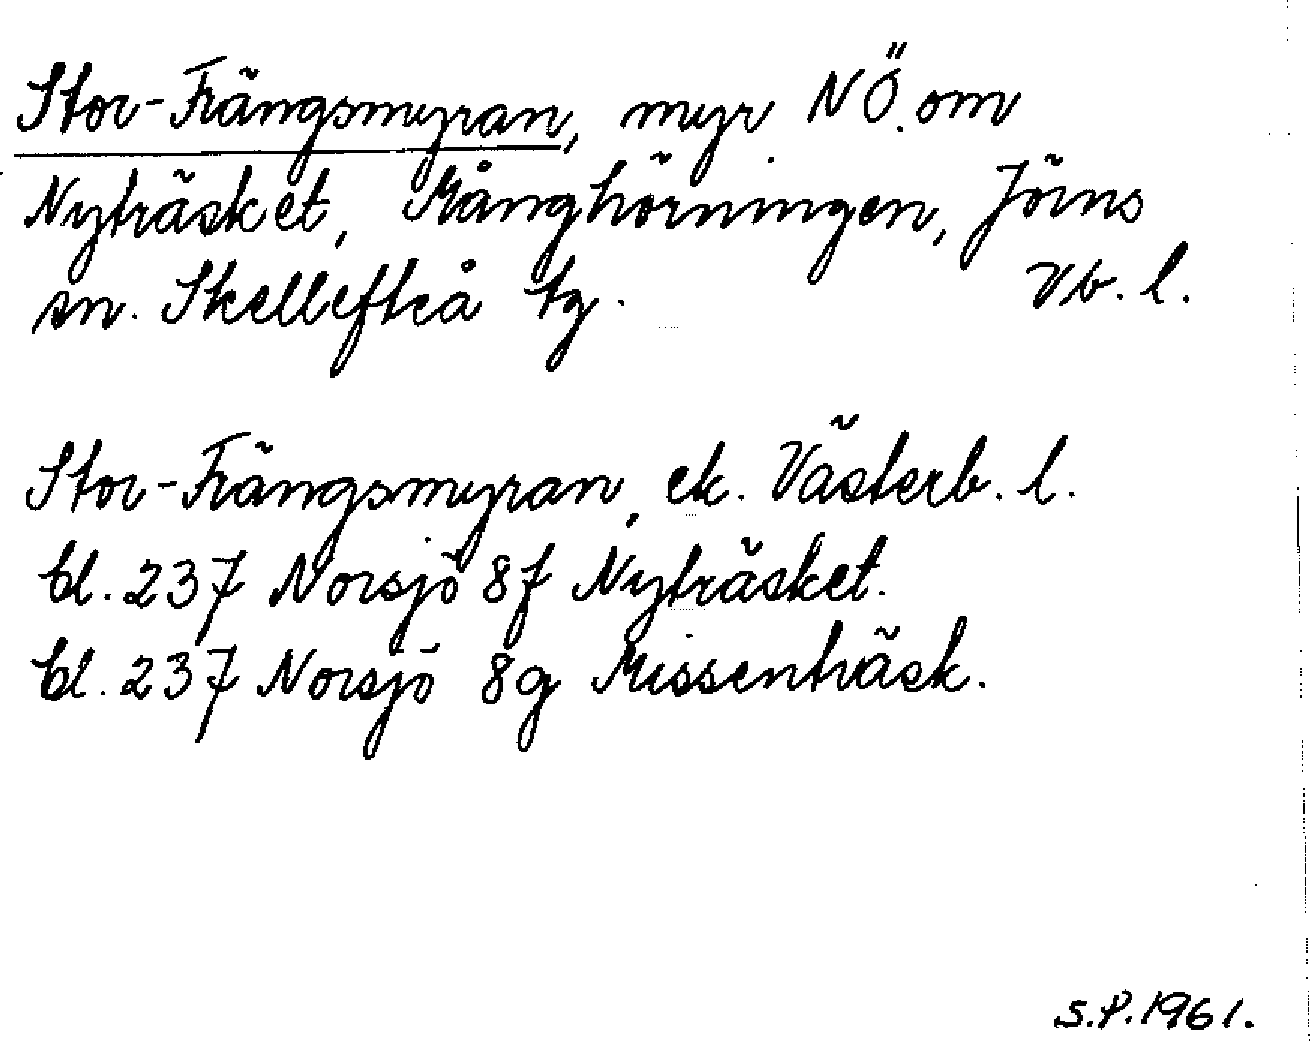 Stor-Frängsmyran, myr NÖ. om
Nyträsket, Månghörningen, Jörns
sn. Skellefteå tg. Vb. l.
Stor-Frängsmyran, ek. Västerb. l.
bl. 237 Norsjö 8f Nyträsket.
bl. 237 Norsjö 8g Missenträsk.
S.P. 1961.